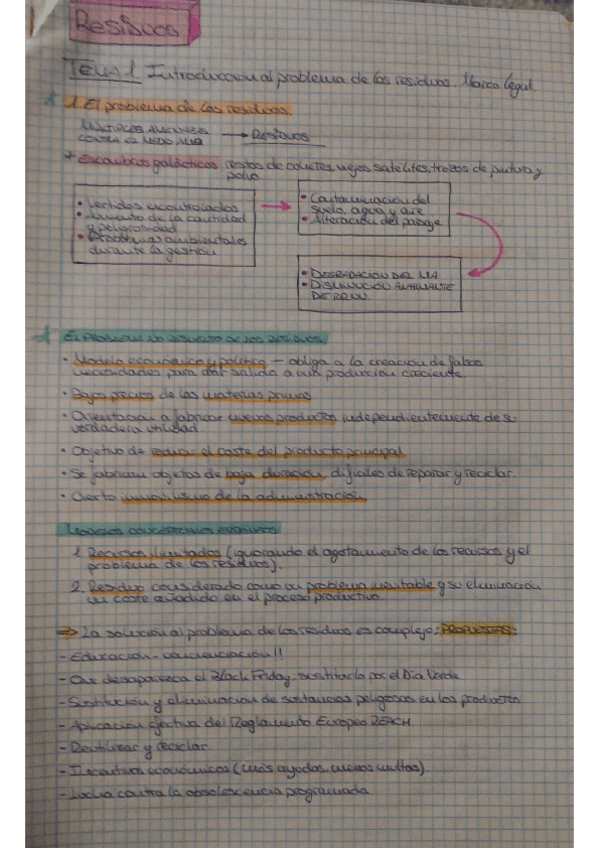 Residuos
TEMA 1. Introducción al problema de los residuos. Marco legal
1. El problema de los residuos
MÚLTIPLES
CONTRA EL MEDIO → RESIDUOS
+ Escombros galácticos restos de cohetes, viejos satélites, trozos de pintura y
polvo
• Vertidos incontrolados
• Aumento de la cantidad
y peligrosidad
• Problemas ambientales
durante la gestión
• Contaminación del
suelo, agua y aire
• Alteración del paisaje
• DEGRADACIÓN DEL MA
• DISMINUCIÓN ALARMANTE
DE RRNN
EL PROBLEMA NO RESUELTO DE LOS RESIDUOS
• Modelo económico y político — obliga a la creación de falsas
necesidades para dar salida a una producción creciente
• Bajos precios de las materias primas
• Orientación a fabricar nuevos productos independientemente de su
verdadera utilidad
• Objetivo de reducir el coste del producto principal
• Se fabrican objetos de baja duración, difíciles de reparar y reciclar
• Cierto inmovilismo de la administración
MODELOS CONCEPTUALES ERRÓNEOS
1. Recursos ilimitados (ignorando el agotamiento de los recursos y el
problema de los residuos).
2. Residuo considerado como un problema inevitable y su eliminación
un coste añadido en el proceso productivo
⇒ La solución al problema de los residuos es complejo; PROPUESTAS:
- Educación - concienciación!!
- Que desaparezca el Black Friday; sustituirlo por el Día Verde
- Sustitución y eliminación de sustancias peligrosas en los productos
- Aplicación efectiva del Reglamento Europeo REACH
- Reutilizar y reciclar
- Incentivos económicos (más ayudas, menos multas)
- Lucha contra la obsolescencia programada